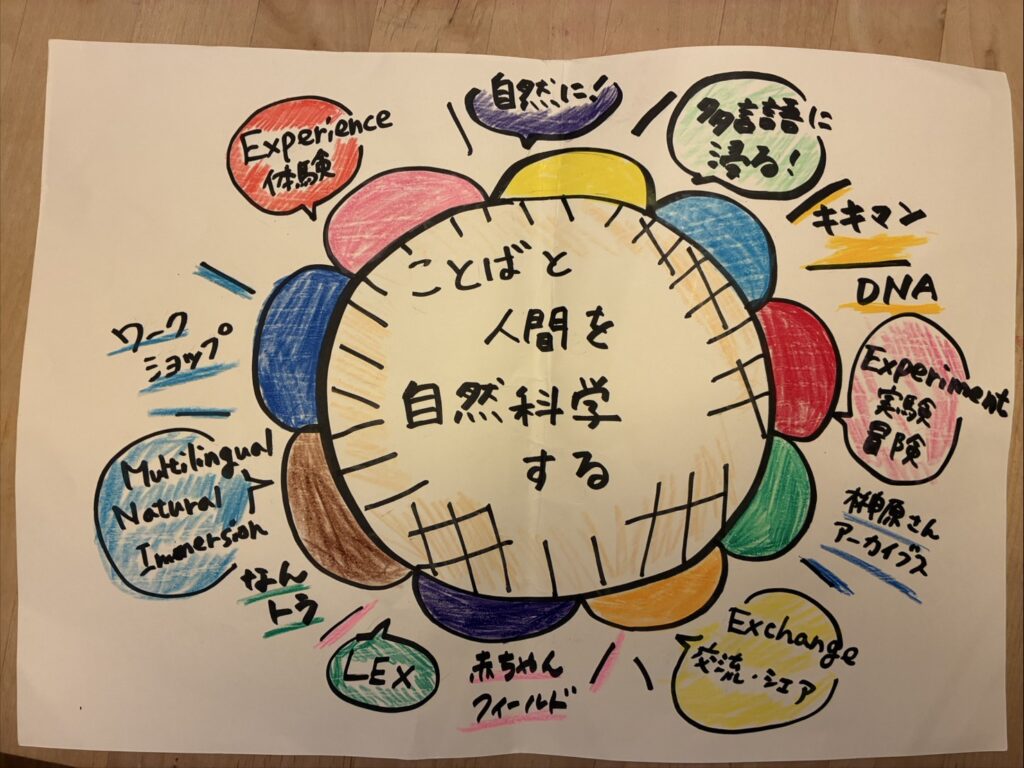 自然に!
多言語に
浸る!
Experience
体験
キキマン
DNA
ことばと
人間を
自然科学
する
ワーク
ショップ
Experiment
実験
冒険
Multilingual
Natural
Immersion
榊原さん
アーカイブス
なん
トラ
LEX
赤ちゃん
フィールド
Exchange
交流・シェア